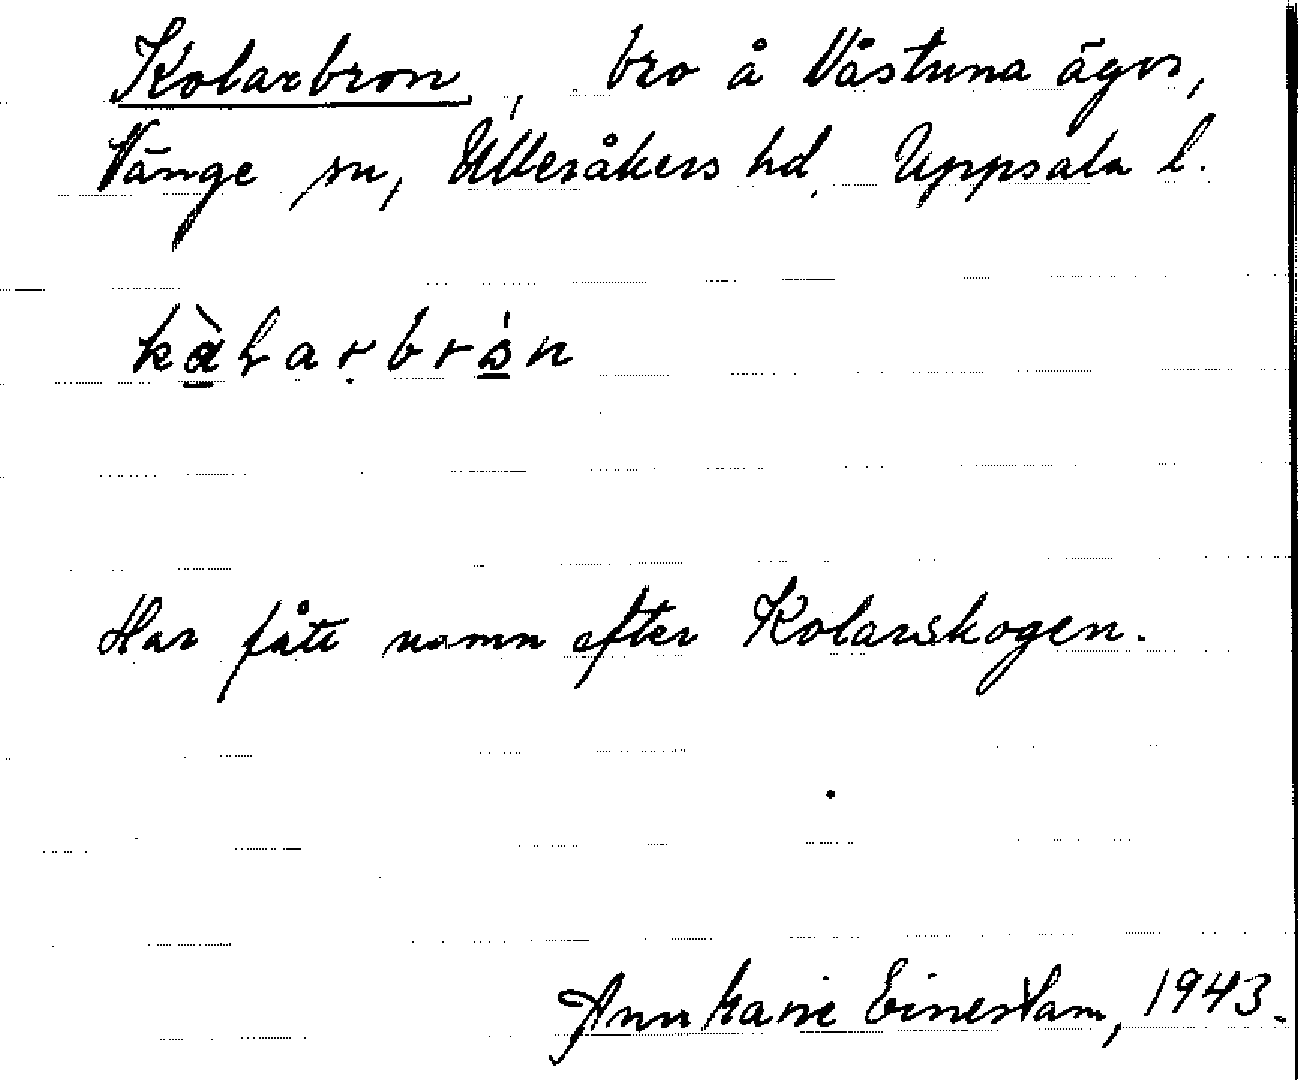 Kolarbron, bro å Våstuna ägor,
Vänge sn, Ulleråkers hd, Uppsala l.
kὰƚarbrón
Har fått namn efter Kolarskogen.
Ann Marie Einerstam, 1943.